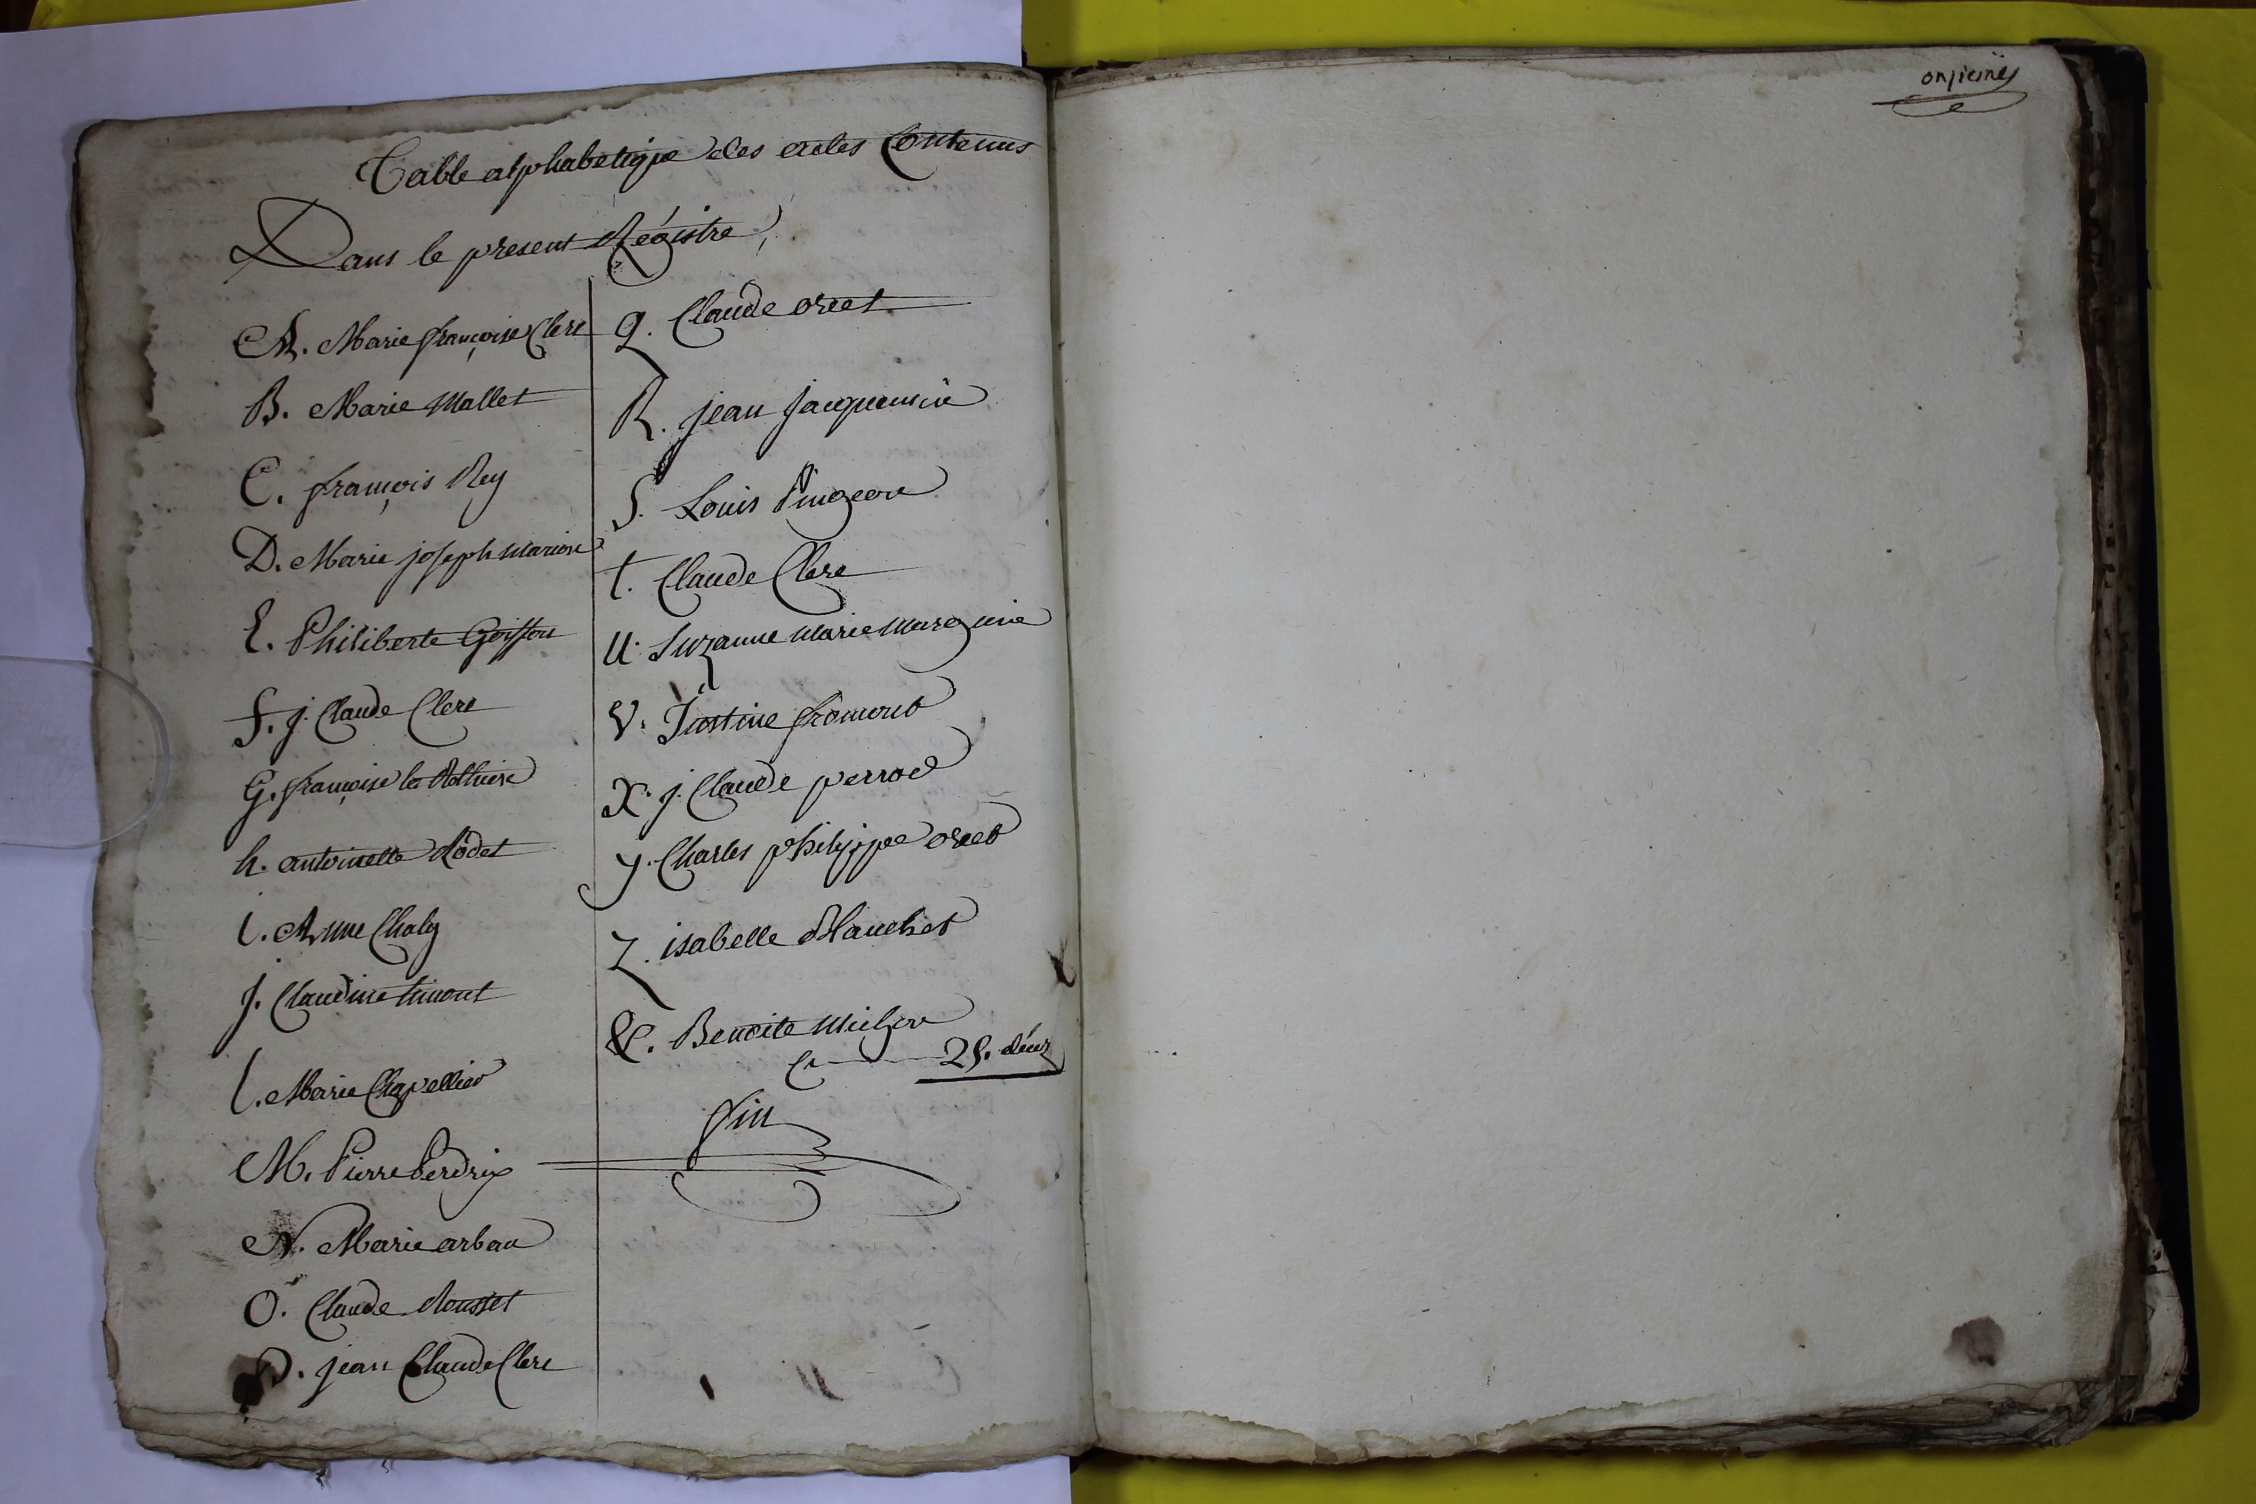 Table alphabetique des actes Contenus
Dans le present Régistre,
A. Marie françoise Clerc
B. Marie Mallet
C. françois Rey
D. Marie joseph Marion
E. Philiberte Goiffon
F. j. Claude Clerc
G. françoise la Rothiere
h. antoinette Rodet
i. Anne Chaly
J. Claudine
l. Marie Chapellier
M. Pierre Perdrix
N. Marie arban
O. Claude Rousset
P. jean Claude Clerc
q. Claude orcet
R. jean jacquemin
S. Louis Pingeon
t. Claude Clerc
U. Suzanne Marie Marguin
V. Justine fromont
X. j. Claude perrod
y. Charles philippe orcet
Z. isabelle Blanchet
&. Benoite Michon
25. décez
fin
onzieme